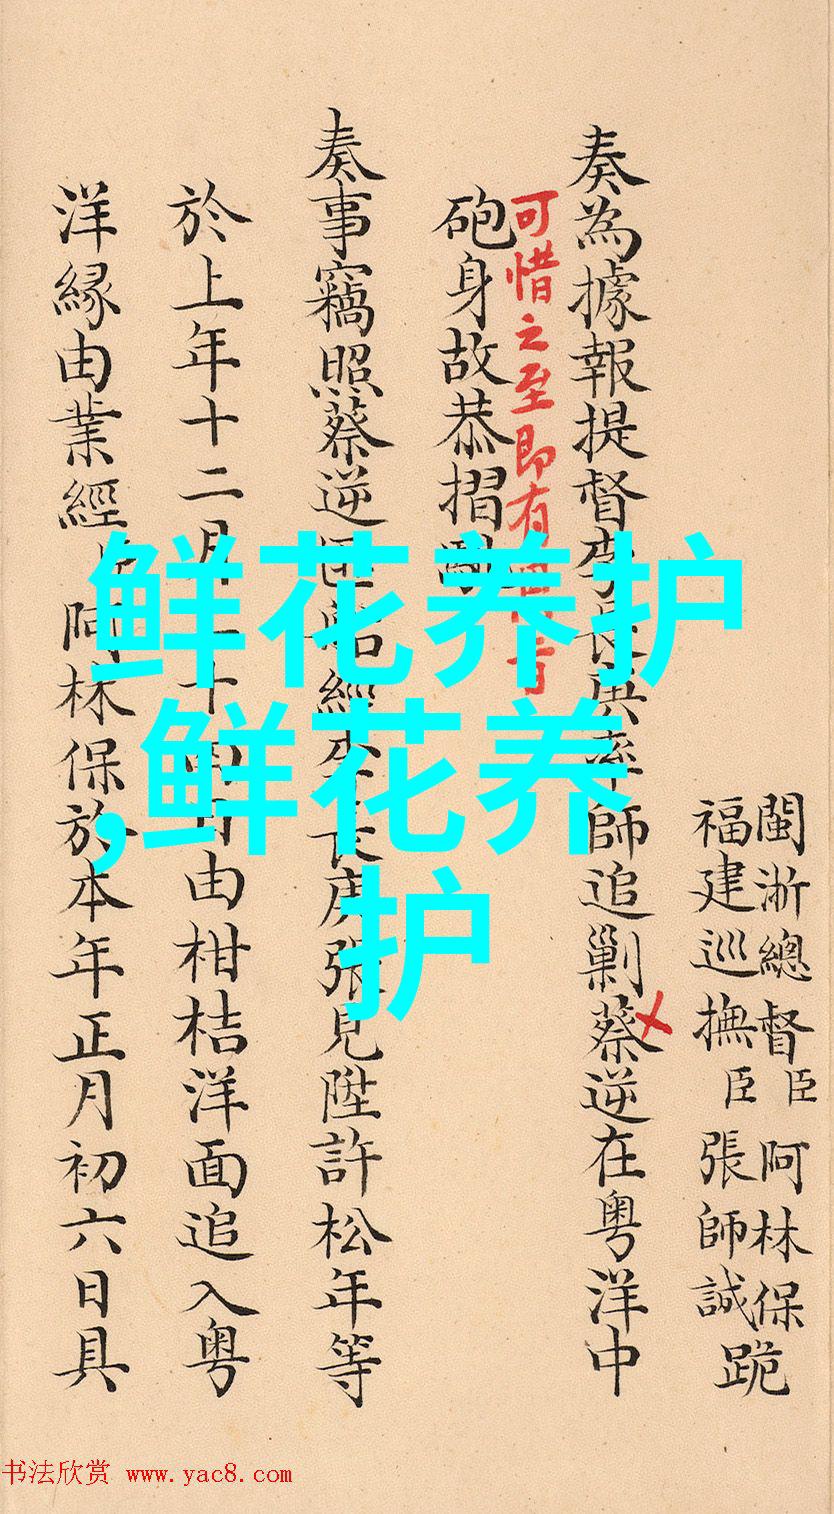 閩浙總督臣阿林保
福建巡撫臣張師誠跪
奏為據報提督李長庚率師追剿蔡逆在粵洋中
可惜之至即有旨
砲身故恭摺
奏事竊照蔡逆匪船經李長庚張見陞許松年等
於上年十二月二十四日由柑桔洋面追入粵
洋緣由業經臣阿林保於本年正月初六日具
鲜花养护
,鲜花养
护
书法欣赏 www.yac8.com